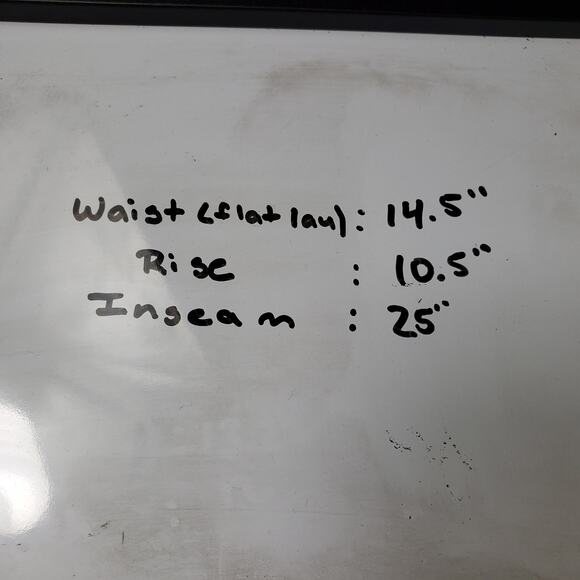 Waist (flat lay): 14.5"
Rise : 10.5"
Inseam : 25"